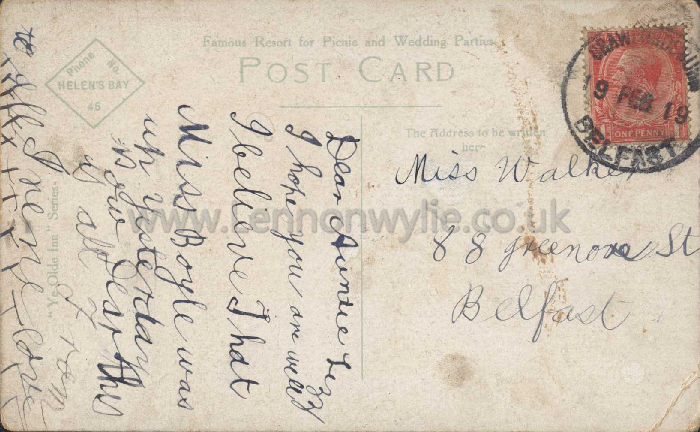 Famous Resort for Picnic and Wedding Parties
POST CARD
Phone No.
HELEN'S BAY
46
"Ye Olde Inn" Series.
The Address to be written
here
CRAWFORDSBURN
9 FEB 19
BELFAST
ONE PENNY
Miss Walker
88 Greenore St
Belfast
Dear Auntie Lizzy
I hope you are well
I believe That
Miss Boyle was
up yesterday
Now Dear this
is all
From
Irene
Love
to all
www.lennonwylie.co.uk